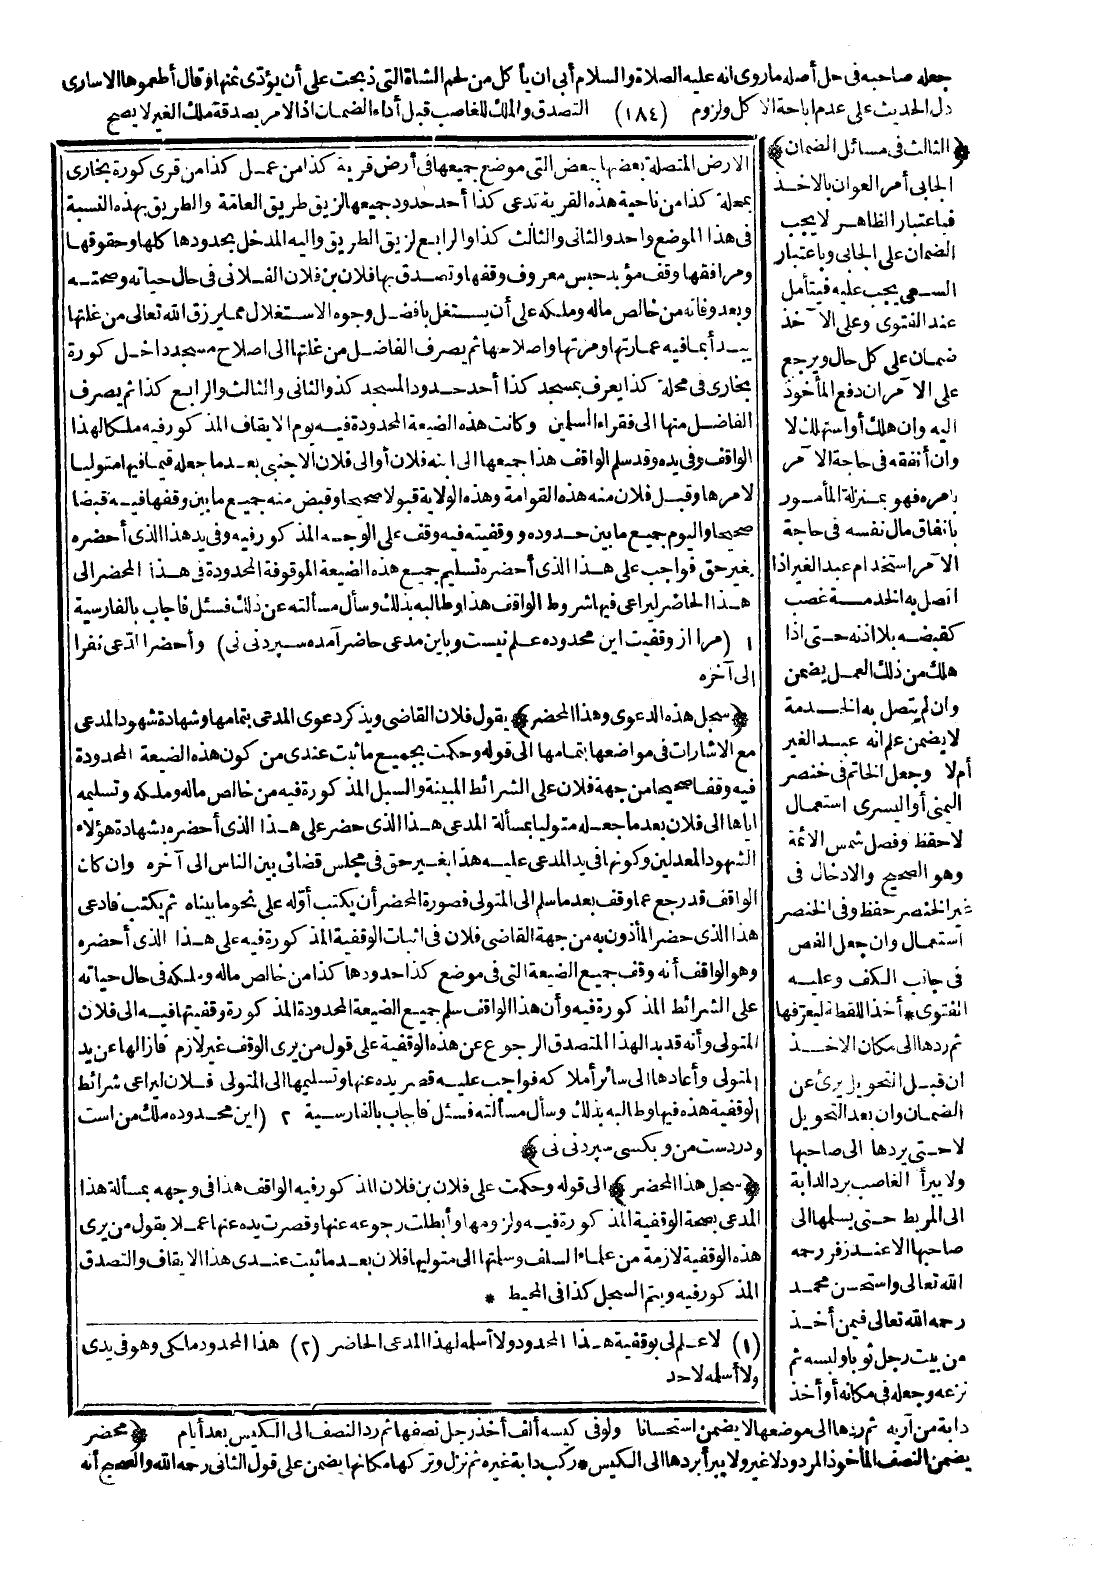 جعله صاحبه في حل أصله ماروى انه عليه الصلاة والسلام أبى ان يأكل من لحم الشاة التي ذبحت على أن يؤدى ثمنها وقال أطعموها الاسارى
دل الحديث على عدم اباحة الاكل ولزوم (١٨٤) التصدق والملك للغاصب قبل أداء الضمان اذ الامر بصدقة ملك الغير لا يصح
﴿الثالث في مسائل الضمان﴾
الجابى أمر العوان بالاخذ
فباعتبار الظاهر لا يجب
الضمان على الجابى وباعتبار
السعى يجب عليه فيتأمل
عند الفتوى وعلى الآخذ
ضمان على كل حال ويرجع
على الآمر ان دفع المأخوذ
اليه وان هلك أو استهلك لا
وان أنفقه في حاجة الآمر
بامره فهو بمنزلة المأمور
بانفاق مال نفسه في حاجة
الآمر استخدام عبد الغير اذا
اتصل به الخدمة غصب
كقبضه بلا اذنه حتى اذا
هلك من ذلك العمل يضمن
وان لم يتصل به الخدمة
لا يضمن علم انه عبد الغير
أم لا وجعل الخاتم في خنصر
اليمنى أو اليسرى استعمال
لا حفظ وفصل شمس الائمة
وهو الصحيح والادخال في
غير الخنصر حفظ وفى الخنصر
استعمال وان جعل الفص
في جانب الكف وعليه
الفتوى * أخذ اللقطة ليعرفها
ثم ردها الى مكان الاخذ
ان قبل التحويل برئ عن
الضمان وان بعد التحويل
لا حتى يردها الى صاحبها
ولا يبرأ الغاصب برد الدابة
الى المربط حتى يسلمها الى
صاحبها الا عند زفر رحمه
الله تعالى واستحسن محمد
رحمه الله تعالى فيمن أخذ
من بيت رجل ثوبا ولبسه ثم
نزعه وجعله في مكانه أو أخذ
الارض المتصلة بعضها ببعض التي موضع جميعها في أرض قرية كذا من عمل كذا من قرى كورة بخارى
بمحلة كذا من ناحية هذه القرية تدعى كذا أحد حدود جميعها لزيق طريق العامة والطريق بهذه النسبة
في هذا الموضع واحد والثانى والثالث كذا والرابع لزيق الطريق واليه المدخل بحدودها كلها وحقوقها
ومرافقها وقف مؤبد حبس معروف وقفها وتصدق بها فلان بن فلان الفلانى في حال حياته وصحته
وبعد وفاته من خالص ماله وملكه على أن يستغل بافضل وجوه الاستغلال مما يرزق الله تعالى من غلتها
يبدأ بما فيه عمارتها ومرمتها واصلاحها ثم يصرف الفاضل من غلتها الى اصلاح مسجد داخل كورة
بخارى في محلة كذا يعرف بمسجد كذا أحد حدود المسجد كذا والثانى والثالث والرابع كذا ثم يصرف
الفاضل منها الى فقراء المسلمين وكانت هذه الضيعة المحدودة فيه يوم الايقاف المذكور فيه ملكا لهذا
الواقف وفى يده وقد سلم الواقف هذا جميعها الى ابنه فلان أو الى فلان الاجنبى بعد ما جعله قيما فيها متوليا
لامرها وقبل فلان منه هذه القوامة وهذه الولاية قبولا صحيحا وقبض منه جميع ما بين وقفها فيه قبضا
صحيحا واليوم جميع ما بين حدوده ووقفيته فيه وقف على الوجه المذكور فيه وفى يد هذا الذى أحضره
بغير حق فواجب على هذا الذى أحضره تسليم جميع هذه الضيعة الموقوفة المحدودة في هذا المحضر الى
هذا الحاضر ليراعى فيها شروط الواقف هذا وطالبه بذلك وسأل مسألته عن ذلك فسئل فاجاب بالفارسية
١ (مرا از وقفيت اين محدوده علم نيست وباين مدعى حاضر آمده سپردنى نى) وأحضر المدعى نفرا
الى آخره
﴿سجل هذه الدعوى وهذا المحضر﴾ يقول فلان القاضى ويذكر دعوى المدعى بتمامها وشهادة شهود المدعى
مع الاشارات في مواضعها بتمامها الى قوله وحكمت بجميع ما ثبت عندى من كون هذه الضيعة المحدودة
فيه وقفا صحيحا من جهة فلان على الشرائط المبينة والسبل المذكورة فيه من خالص ماله وملكه وتسليمه
اياها الى فلان بعد ما جعله متوليا بمسألة المدعى هذا الذى حضر على هذا الذى أحضره بشهادة هؤلاء
الشهود المعدلين وكونها في يد المدعى عليه هذا بغير حق في مجلس قضائى بين الناس الى آخره وان كان
الواقف قد رجع عما وقف بعد ما سلم الى المتولى فصورة المحضر أن يكتب أوّله على نحو ما بيناه ثم يكتب فادعى
هذا الذى حضر المأذون به من جهة القاضى فلان في اثبات الوقفية المذكورة فيه على هذا الذى أحضره
وهو الواقف أنه وقف جميع الضيعة التي في موضع كذا حدودها كذا من خالص ماله وملكه في حال حياته
على الشرائط المذكورة فيه وأن هذا الواقف سلم جميع الضيعة المحدودة المذكورة وقفيتها فيه الى فلان
المتولى وأنه قد بدا لهذا المتصدق الرجوع عن هذه الوقفية على قول من يرى الوقف غير لازم فازالها عن يد
المتولى وأعادها الى سائر أملاكه فواجب عليه قصر يده عنها وتسليمها الى المتولى فلان ليراعى شرائط
الوقفية هذه فيها وطالبه بذلك وسأل مسألته فسئل فاجاب بالفارسية ٢ (اين محدوده ملك من است
ودردست من وبكسى سپردنى نى)
﴿سجل هذا المحضر﴾ الى قوله وحكمت على فلان بن فلان المذكور فيه الواقف هذا في وجهه بمسألة هذا
المدعى بصحة الوقفية المذكورة فيه ولزومها وأبطلت رجوعه عنها وقصرت يده عنها عملا بقول من يرى
هذه الوقفية لازمة من علماء السلف وسلمتها الى متوليها فلان بعد ما ثبت عندى هذا الايقاف والتصدق
المذكور فيه ويتم السجل كذا في المحيط *
(١) لا علم لى بوقفية هذا المحدود ولا أسلمه لهذا المدعى الحاضر (٢) هذا المحدود ملكى وهو في يدى
ولا أسلمه لاحد
دابة من آريه ثم ردها الى موضعها لا يضمن استحسانا ولو في كيسه ألف أخذ رجل نصفها ثم رد النصف الى الكيس بعد أيام ﴿محضر
يضمن النصف المأخوذ المردود لا غير ولا يبرأ بردها الى الكيس * ركب دابة غيره ثم نزل وتركها مكانها يضمن على قول الثانى رحمه الله والصحيح أنه